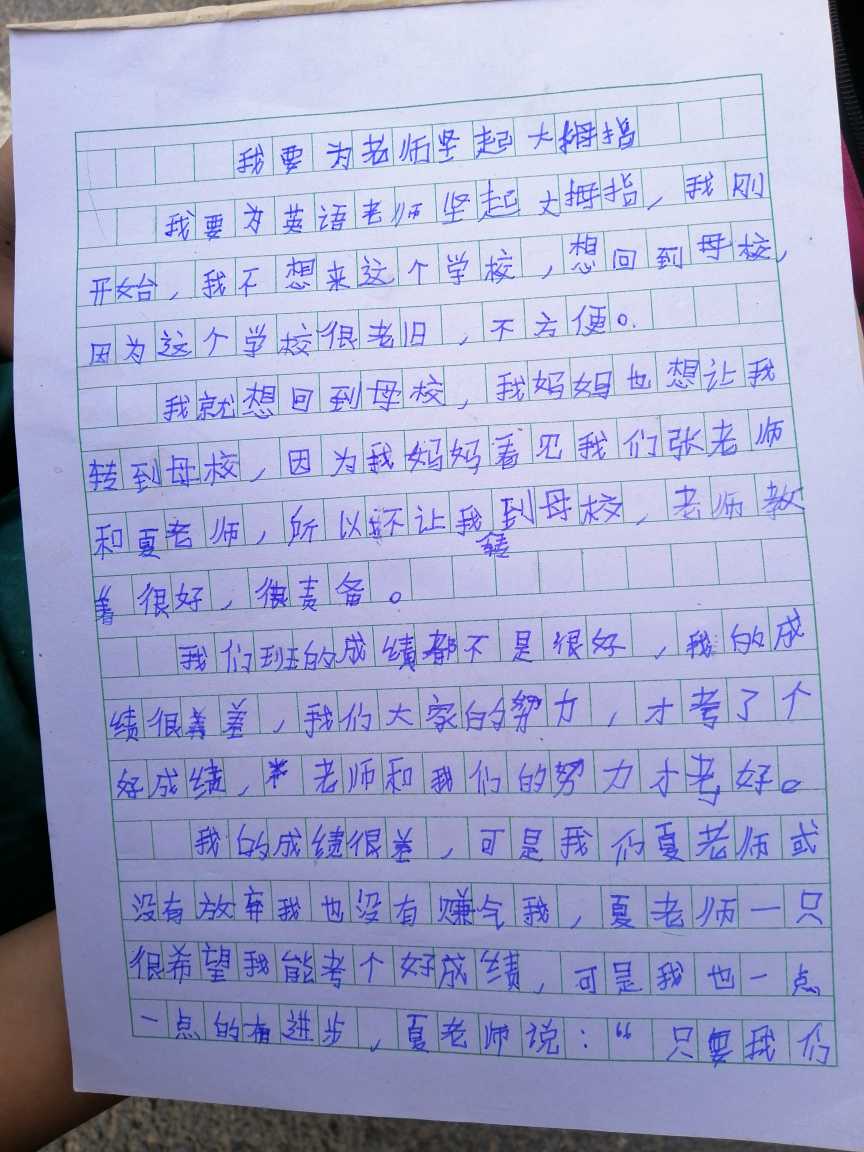 我要为老师坚起大拇指
我要为英语老师坚起大拇指，我刚
开始，我不想来这个学校，想回到母校，
因为这个学校很老旧，不方便。
我就想回到母校，我妈妈也想让我
转到母校，因为我妈妈看见我们张老师
和夏老师，所以不让我转到母校，老师教
很好，很责备。
我们班的成绩都不是很好，我的成
绩很差，我们大家的努力，才考了个
好成绩，老师和我们的努力才考好。
我的成绩很差，可是我们夏老师或
没有放弃我也没有赚气我，夏老师一只
很希望我能考个好成绩，可是我也一点
一点的有进步，夏老师说：“只要我们